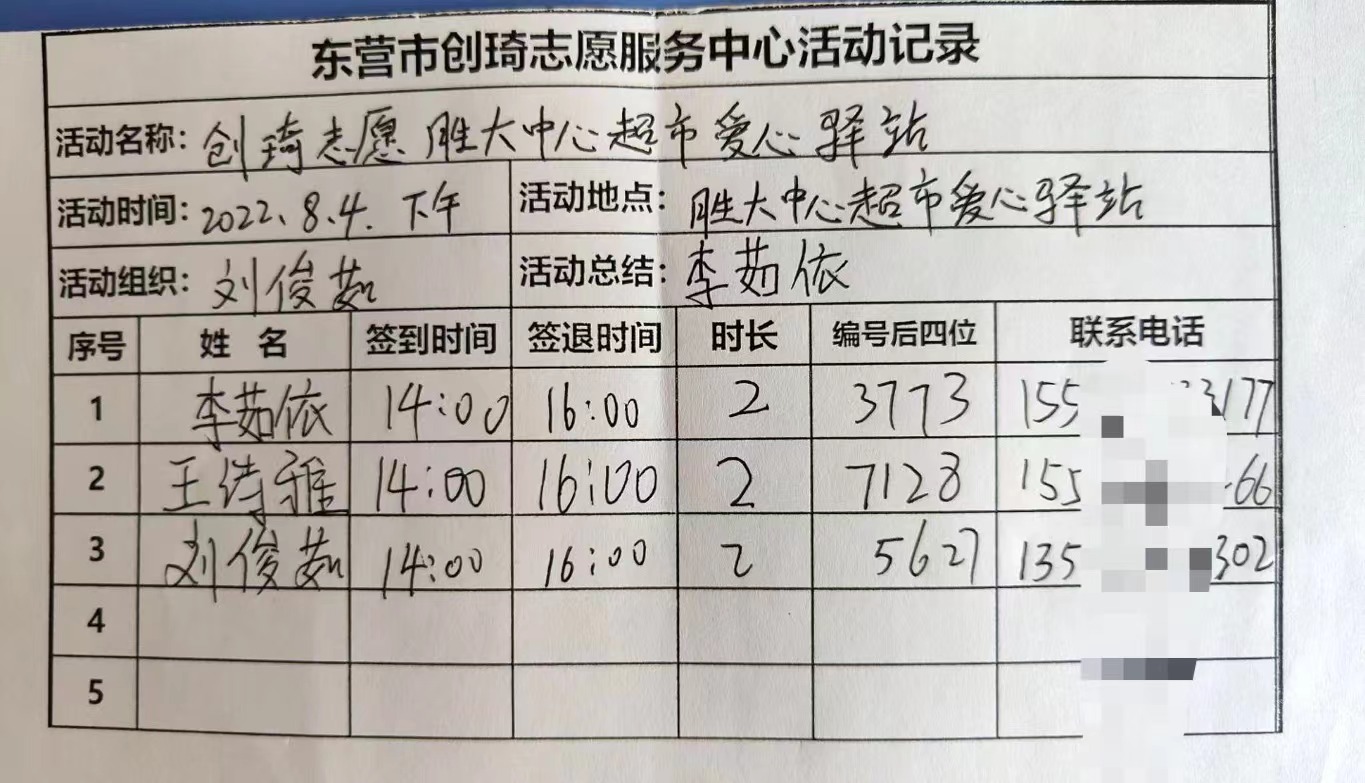 东营市创琦志愿服务中心活动记录
活动名称: 创琦志愿胜大中心超市爱心驿站
活动时间: 2022.8.4. 下午 活动地点: 胜大中心超市爱心驿站
活动组织: 刘俊茹 活动总结: 李茹依
序号 姓 名 签到时间 签退时间 时长 编号后四位 联系电话
1 李茹依 14:00 16:00 2 3773 155 3177
2 王诗雅 14:00 16:00 2 7128 155 66
3 刘俊茹 14:00 16:00 2 5627 135 302
4
5